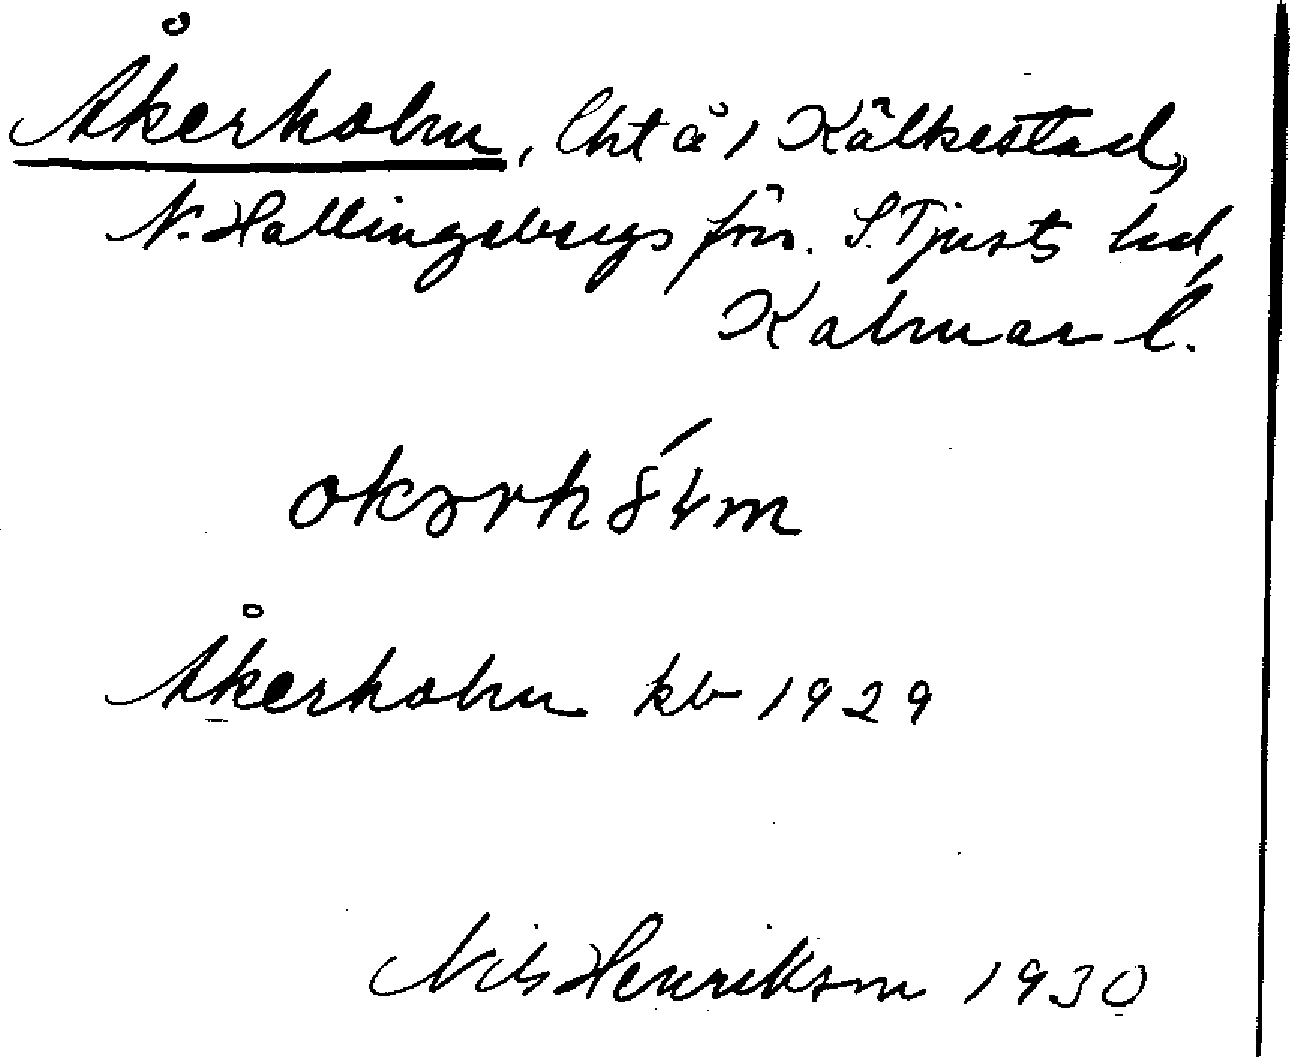 Åkerholm, lht å, Kälkestad,
N. Hallingebergs srn. S. Tjusts hd,
Kalmar l.
Åkerholm kb 1929
Nils Henrikson 1930